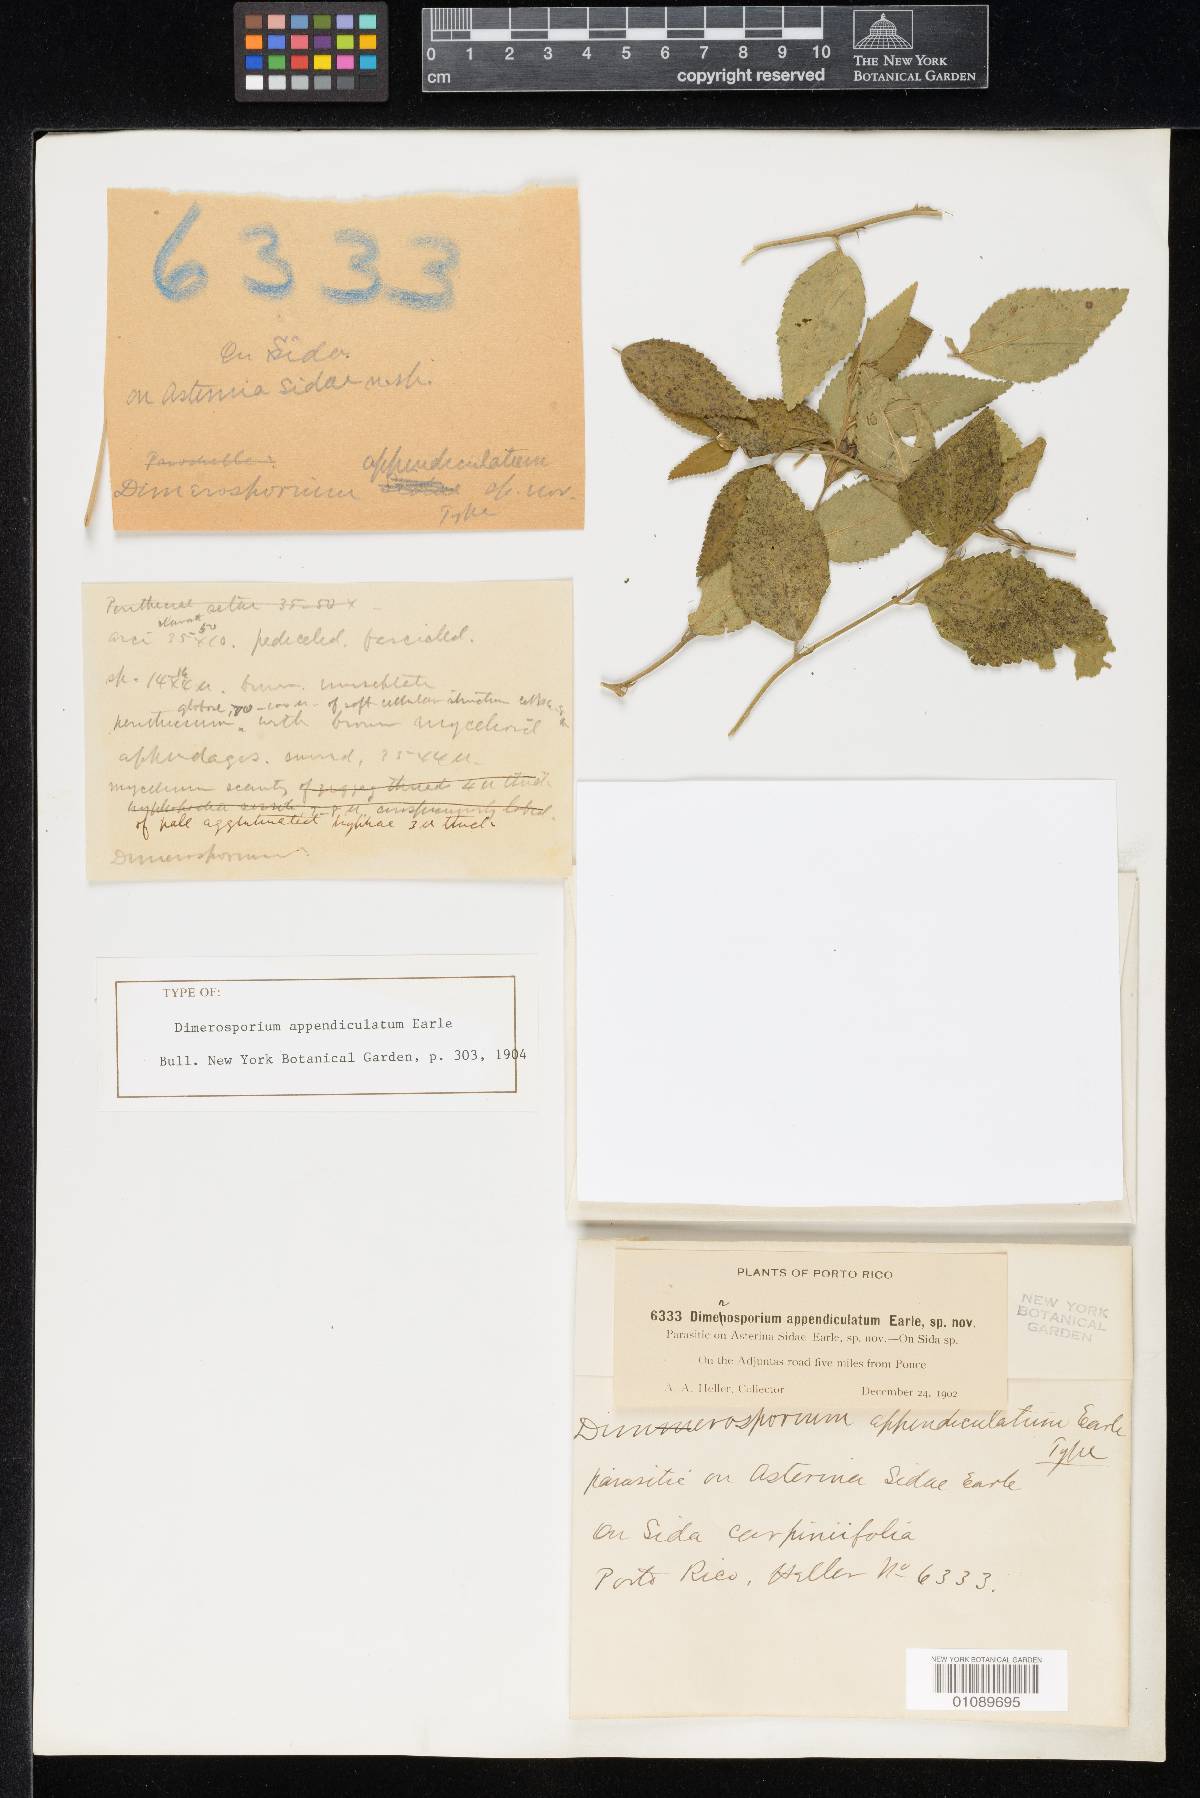 0 1 2 3 4 5 6 7 8 9 10
cm
copyright reserved
THE NEW YORK
BOTANICAL GARDEN
6333
On Sida.
on Asterina Sidae n.sp.
appendiculatum
Dimerosporium sp. nov.
Type
Perithecial setae 35-50 x
asci 35-50 x 10. pediceled. fascicled.
sp. 14-16 x 4 u. brown.
globose, 70-100 u. of soft cellular structure
perithecium with brown mycelioid
appendages. 25 x 4 u.
mycelium scanty of zigzag threads 4 u thick
of pale agglutinated hyphae 3 u thick
Dimerosporium?
TYPE OF:
Dimerosporium appendiculatum Earle
Bull. New York Botanical Garden, p. 303, 1904
PLANTS OF PORTO RICO
6333 Dimerosporium appendiculatum Earle, sp. nov.
Parasitic on Asterina Sidae Earle, sp. nov.—On Sida sp.
On the Adjuntas road five miles from Ponce
A. A. Heller, Collector December 24, 1902
NEW YORK
BOTANICAL
GARDEN
Dimerosporium appendiculatum Earle
Type
parasitic on Asterina Sidae Earle
On Sida carpiniifolia
Porto Rico, Heller No 6333.
NEW YORK BOTANICAL GARDEN
01089695